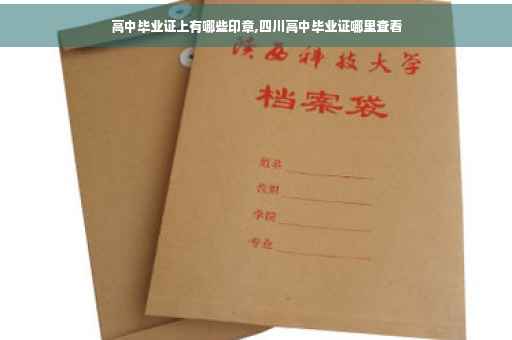 高中毕业证上有哪些印章,四川高中毕业证哪里查看
陕西科技大学
档案袋
学院
专业